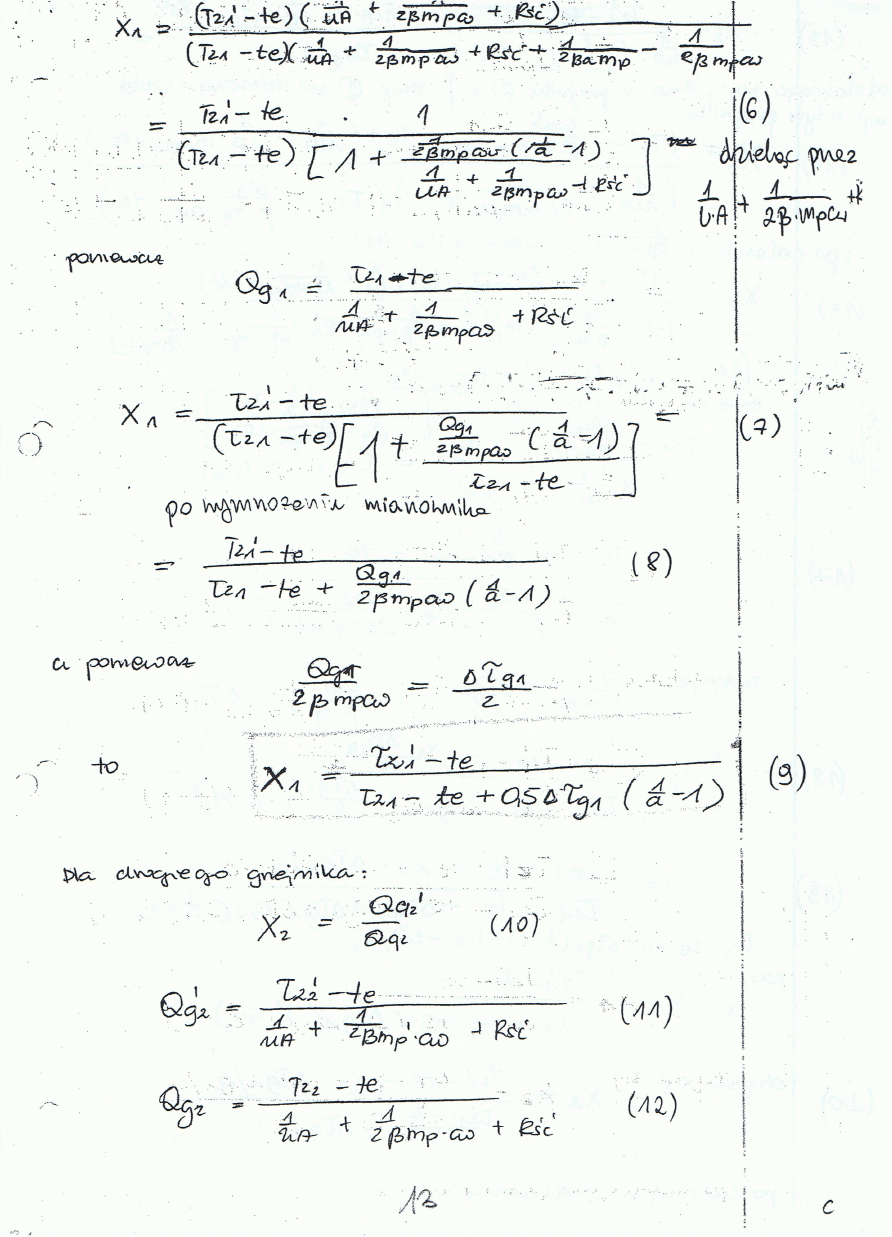 X₁ = (τz1' - te)(1/uA + 1/2βmpcw + Rść) / (τz1 - te)(1/uA + 1/2βmpcw + Rść + 1/2βamp - 1/2βmpcw
= τz1' - te / (τz1 - te) · 1 / [1 + 1/2βmpcw (1/a - 1) / 1/uA + 1/2βmpcw + Rść] (6)
dzieląc przez
1/U·A + 1/2β·mpcw +
ponieważ
Qg1 = τz1 - te / 1/uA + 1/2βmpcw + Rść
X₁ = τz1' - te / (τz1 - te)[1 + Qg1/2βmpcw (1/a - 1) / τz1 - te] = (7)
po wymnożeniu mianownika
= τz1' - te / τz1 - te + Qg1/2βmpcw (1/a - 1) (8)
a ponieważ Qg1/2βmpcw = Δτg1/2
to X₁ = τz1' - te / τz1 - te + 0,5Δτg1 (1/a - 1) (9)
Dla drugiego grzejnika:
X₂ = Qg2'/Qg2 (10)
Qg2' = τz2' - te / 1/uA + 1/2βmp'·cw + Rść (11)
Qg2 = τz2 - te / 1/uA + 1/2βmp·cw + Rść (12)
13
c